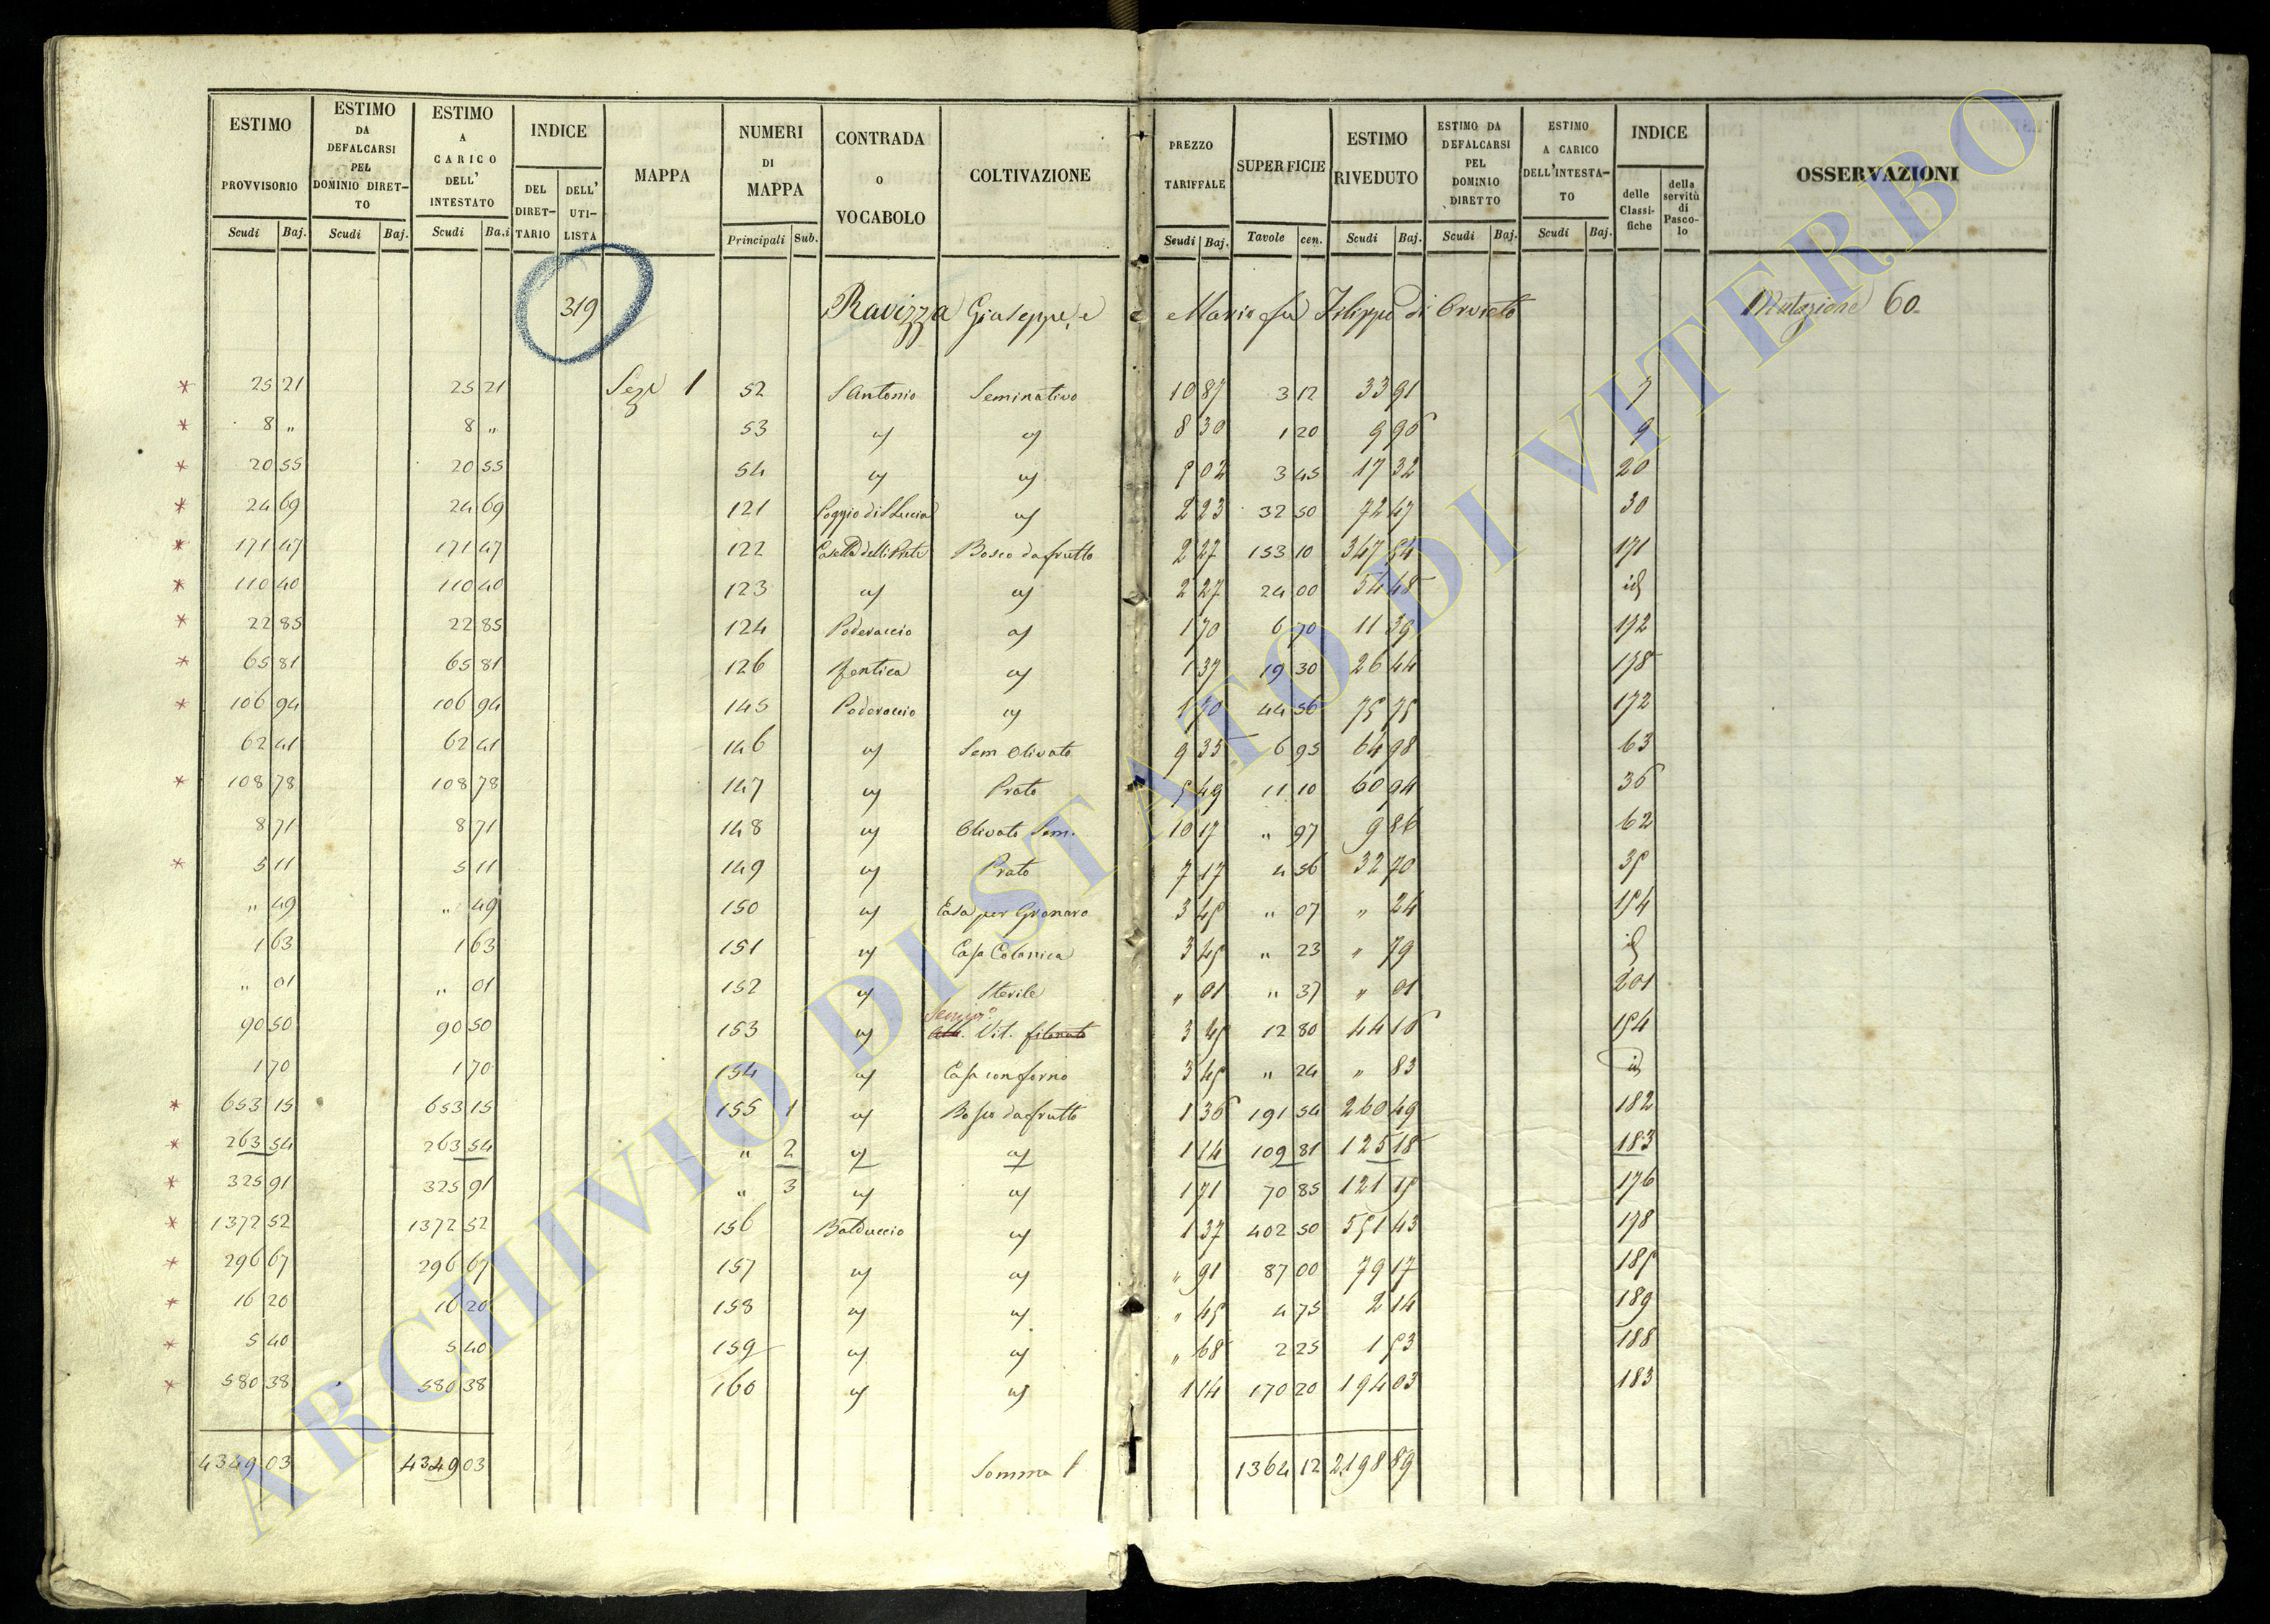 ESTIMO PROVVISORIO Scudi Baj. | ESTIMO DA DEFALCARSI PEL DOMINIO DIRETTO Scudi Baj. | ESTIMO A CARICO DELL' INTESTATO Scudi Ba.i | INDICE DEL DIRETTARIO DELL' UTILISTA | MAPPA | NUMERI DI MAPPA Principali Sub. | CONTRADA O VOCABOLO | COLTIVAZIONE | PREZZO TARIFFALE Scudi Baj. | SUPERFICIE Tavole cen. | ESTIMO RIVEDUTO Scudi Baj. | ESTIMO DA DEFALCARSI PEL DOMINIO DIRETTO Scudi Baj. | ESTIMO A CARICO DELL'INTESTATO Scudi Baj. | INDICE delle Classifiche della servitù di Pascolo | OSSERVAZIONI
319 Ravizza Giuseppe, e e Mario fu Filippo di Orvieto Mutazione 60
* 25 21 25 21 Sez. 1 52 S Antonio Seminativo 10 87 3 12 33 91 7
* 8 " 8 " 53 id id 8 30 1 20 9 96 9
* 20 55 20 55 54 id id 5 02 3 45 17 32 20
* 24 69 24 69 121 Poggio di S Lucia id 2 23 32 50 72 47 30
* 171 47 171 47 122 Bosco da frutto 2 27 153 10 347 54 171
* 110 40 110 40 123 id id 2 27 24 00 54 48 id
* 22 85 22 85 124 Poderaccio id 1 70 6 70 11 39 172
* 65 81 65 81 126 id 1 37 19 30 26 44 178
* 106 94 106 94 145 Poderaccio id 1 70 44 56 75 75 172
62 41 62 41 146 id Sem Olivato 9 35 6 95 64 98 63
* 108 78 108 78 147 id Prato 5 49 11 10 60 94 36
8 71 8 71 148 id Olivato Sem. 10 17 " 97 9 86 62
* 5 11 5 11 149 id Prato 7 17 4 56 32 70 35
" 49 " 49 150 id Casa per Granaro 3 45 " 07 " 24 154
1 63 1 63 151 id Casa Colonica 3 45 " 23 " 79 id
" 01 " 01 152 id Sterile " 01 " 37 " 01 201
90 50 90 50 153 id Semin.o Vit. filonato 3 45 12 80 44 16 154
1 70 1 70 154 id Casa con forno 3 45 " 24 " 83 id
* 653 15 653 15 155 1 id Bosco da frutto 1 36 191 54 260 49 182
* 263 54 263 54 " 2 id id 1 14 109 81 125 18 183
* 325 91 325 91 " 3 id id 1 71 70 85 121 15 176
* 1372 52 1372 52 156 Balduccio id 1 37 402 50 551 43 178
* 296 67 296 67 157 id id " 91 87 00 79 17 185
* 16 20 16 20 158 id id " 45 4 75 2 14 189
* 5 40 5 40 159 id id " 68 2 25 1 53 188
* 580 38 580 38 160 id id 1 14 170 20 194 03 183
4349 03 4349 03 Somma 1364 12 2198 89
ARCHIVIO DI STATO DI VITERBO